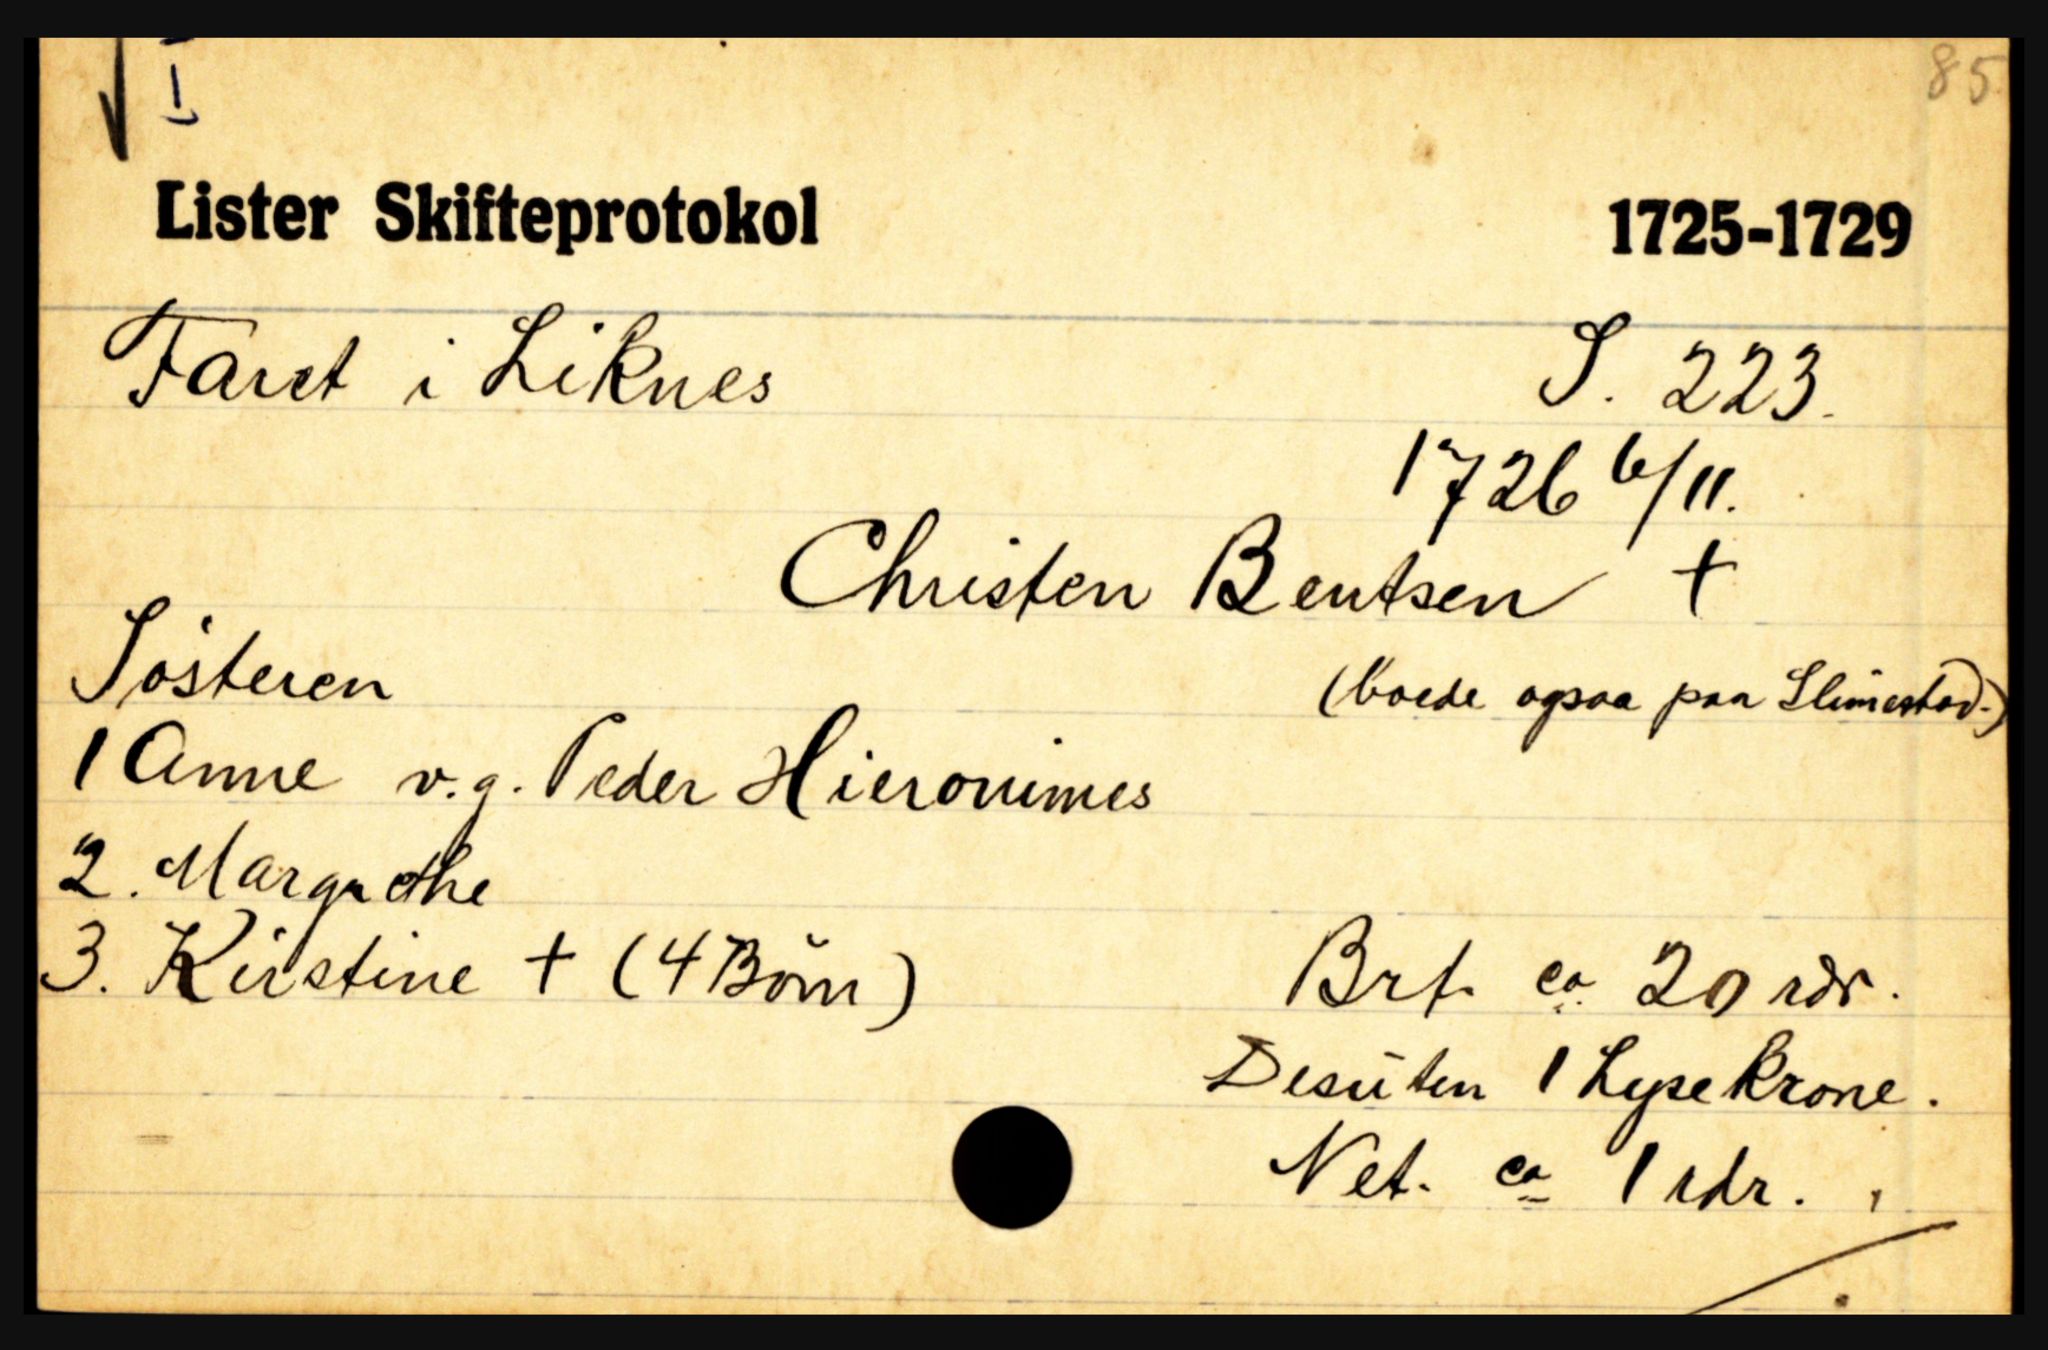 85
Lister Skifteprotokol 1725-1729
Faret i Liknes S. 223.
1726 6/11.
Christen Bentsen +
Søsteren (boede ogsaa paa Slimestad.)
1 Anne v.g. Peder Hieronimes
2. Margrethe
3. Kirstine + (4 Börn) Brt. ca 20 rdr.
Desuten 1 Lysekrone.
Net. ca 1 rdr.